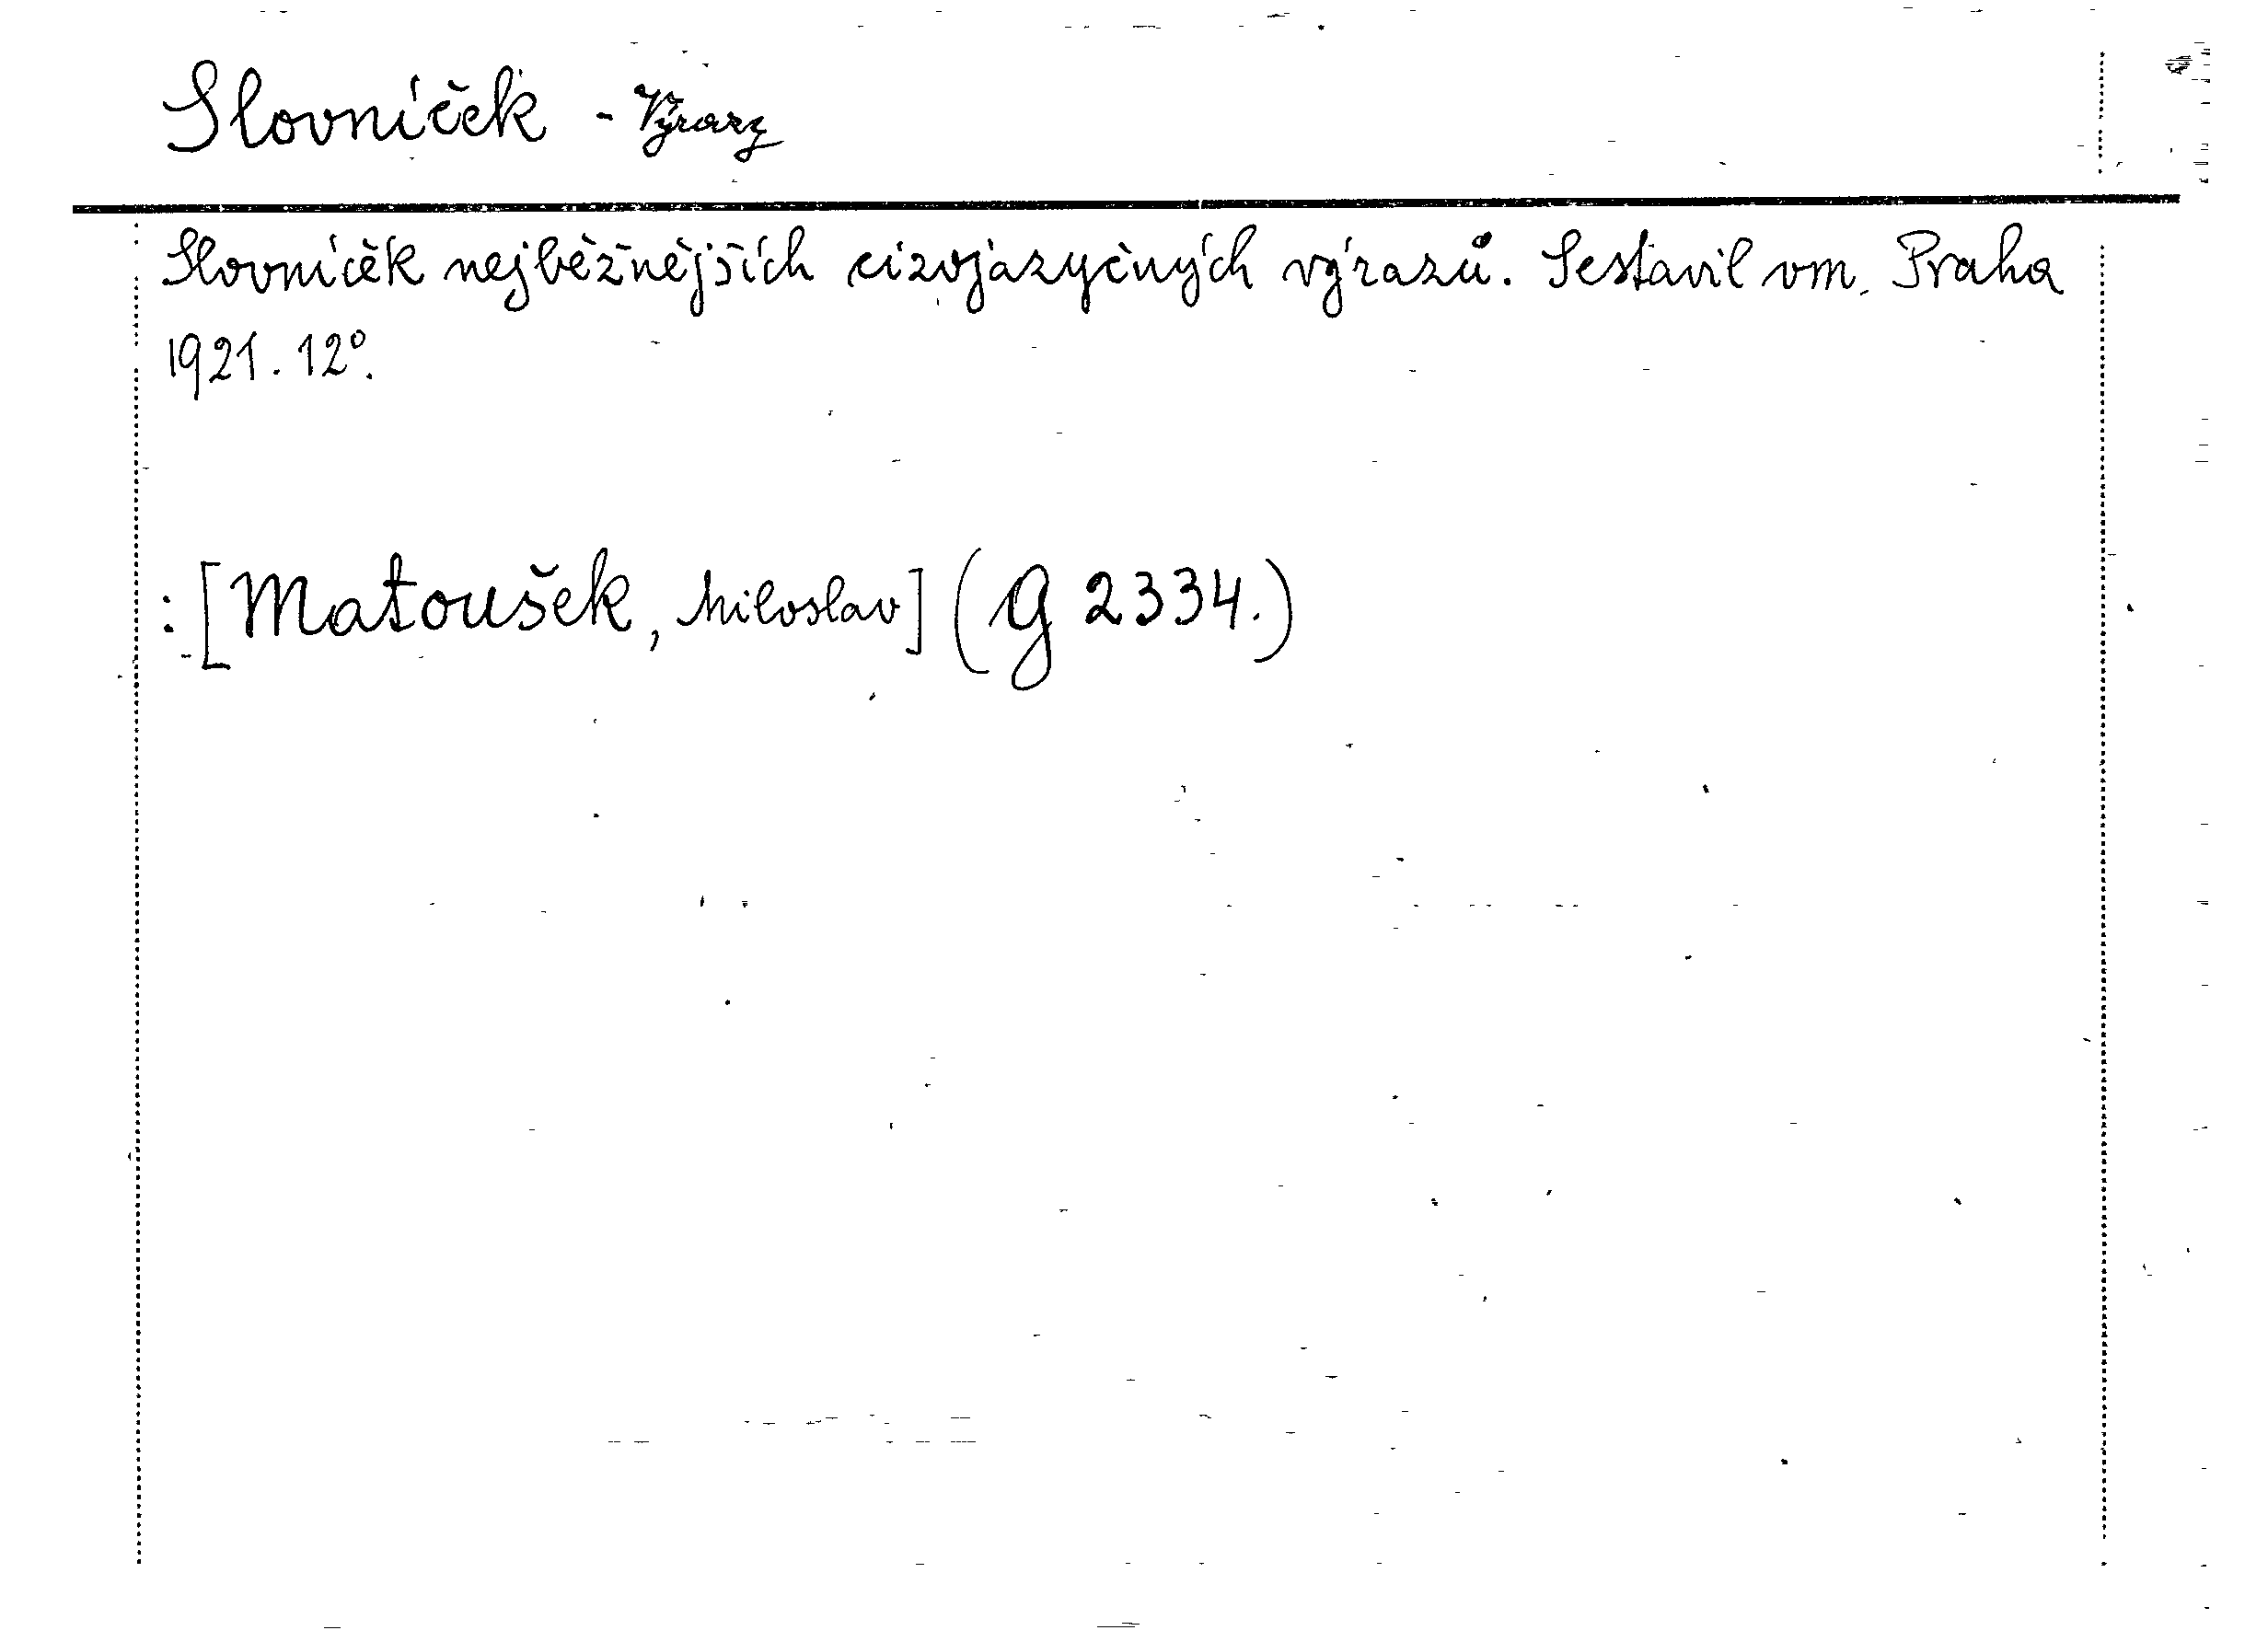 Slovníček - Výrazy
Slovníček nejběžnějších cizojazyčných výrazů. Sestavil vm. Praha
1921. 12°.
: [Matoušek, Miloslav] (G 2334.)